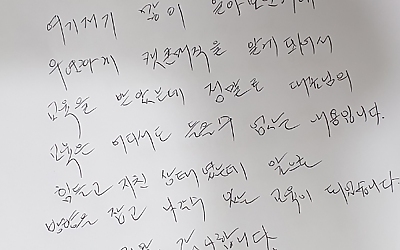 여기저기 많이 알아보던차에
우연하게 컨설팅을 알게 되어서
교육을 받았는데 정말로 대표님의
교육은 어디서도 들을수 없는 내용입니다.
힘들고 지친 상태였는데 앞으로
방향을 잡고 나갈수 있는 교육이 되었습니다.
감사합니다